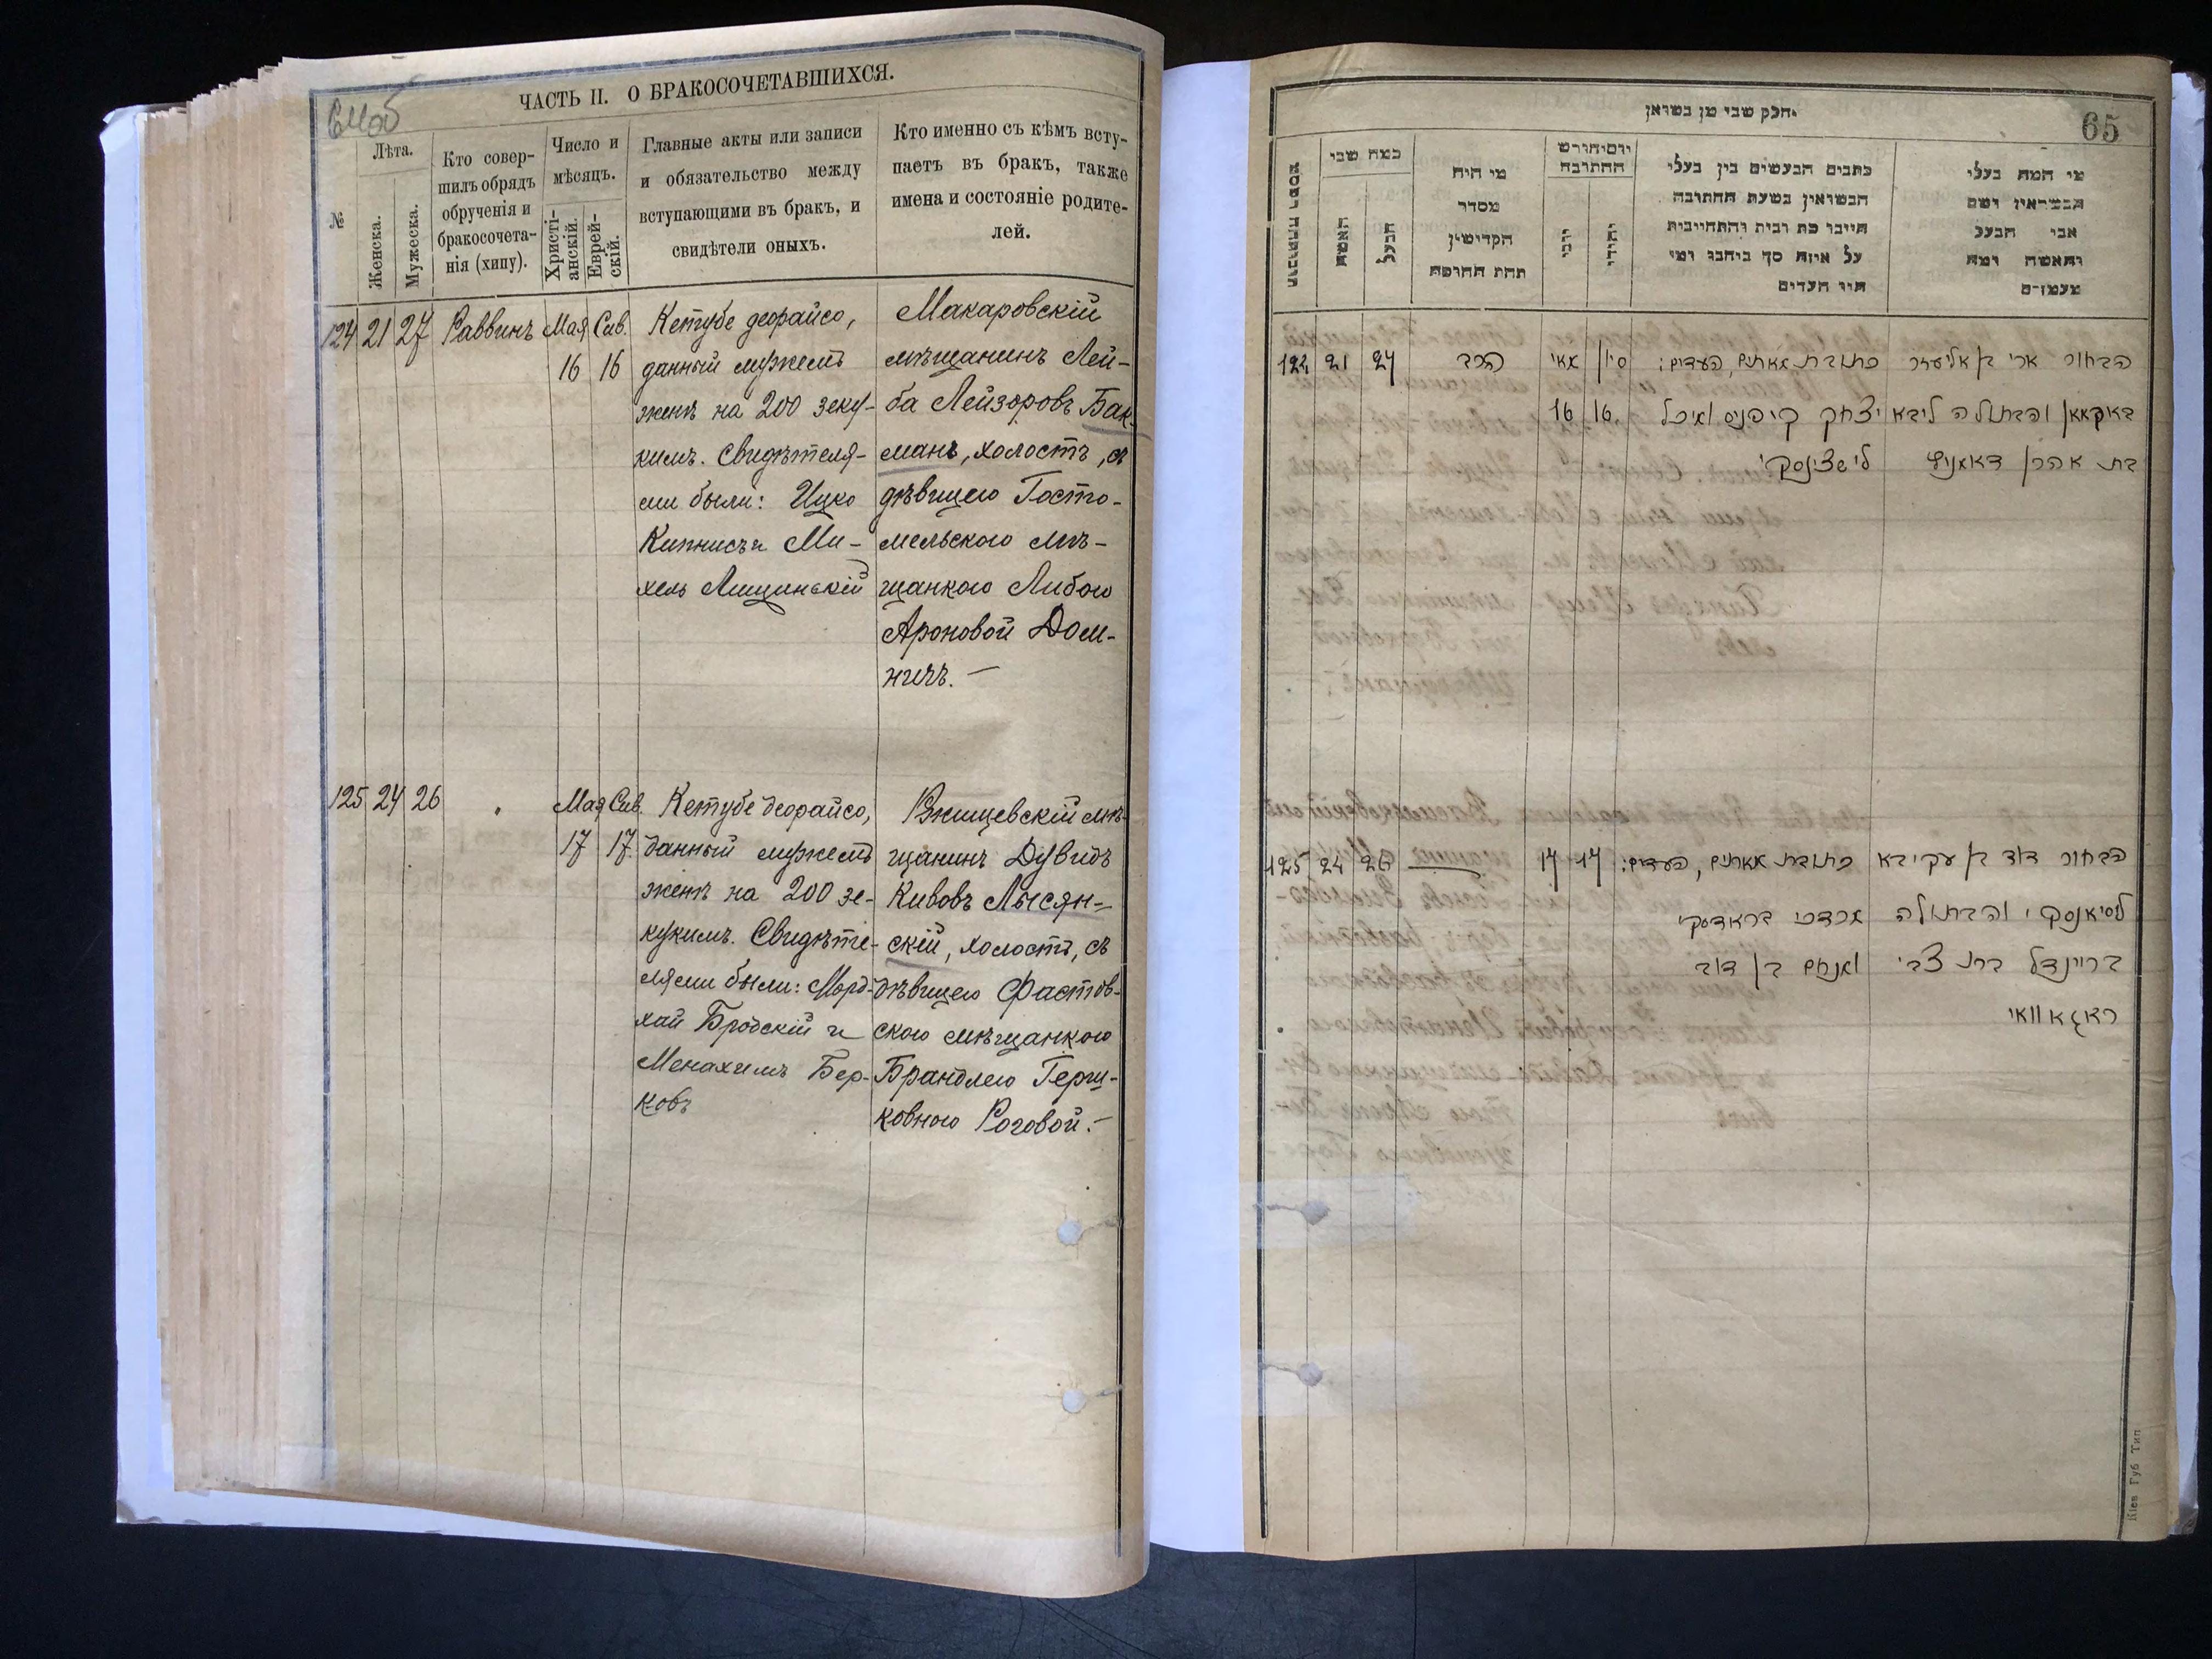 ЧАСТЬ II. О БРАКОСОЧЕТАВШИХСЯ.
№
Лѣта.
Женска.
Мужеска.
Кто совер-
шилъ обрядъ
обрученія и
бракосочета-
нія (хипу).
Число и
мѣсяцъ.
Христі-
анскій.
Еврей-
скій.
Главные акты или записи
и обязательство между
вступающими въ бракъ, и
свидѣтели оныхъ.
Кто именно съ кѣмъ всту-
паетъ въ бракъ, также
имена и состояніе родите-
лей.
124 21 27 Раввинъ Мая Сив.
16 16
Кетубе деорайсо,
данный мужемъ
женѣ на 200 зеку-
кимъ. Свидѣтеля-
ми были: Ицко
Кипнисъ и Ми-
хель Лищинскій
Макаровскій
мѣщанинъ Лей-
ба Лейзоровъ Бак-
манъ, холостъ, съ
дѣвицею Госто-
мельского мѣ-
щанкою Либою
Ароновой Дом-
ничъ. —
125 24 26 Мая Сив.
17 17
Кетубе деорайсо,
данный мужемъ
женѣ на 200 зе-
кукимъ. Свидѣте-
лями были: Морд-
хай Бродскій и
Менахимъ Бер-
ковъ
Ржищевскій мѣ-
щанинъ Дувидъ
Кивовъ Лысян-
скій, холостъ, съ
дѣвицею Фастов-
ского мѣщанкою
Брандлею Герш-
ковною Роговой. —
65
חלק שני מן נשואין
מי המה בעלי
אבי הבעל
והאשה ומה
כתבים הנעשים בין בעלי
הנשואין בשעת החתונה
על איזה סך ניתנו ומי
היו העדים
החתונה
יהודי
מי היה
מסדר
הקדושין
תחת החופה
כמה שני
הבעל
האשה
21 27 הרב מאי סיון
16 16
כתובת מאתים, העדים:
יצחק קיפניס ומיכל
לישצינסקי
הבחור ארי בן אליעזר
באקמאן והבתולה ליבא
בת אהרן דאמניץ
125 24 26 17 17
כתובת מאתים, העדים:
מרדכי בראדסקי
ומנחם בן דוב
הבחור דוד בן עקיבא
ליסיאנסקי והבתולה
בריינדל בת צבי
ראגאוואי
Кіев Губ Тип